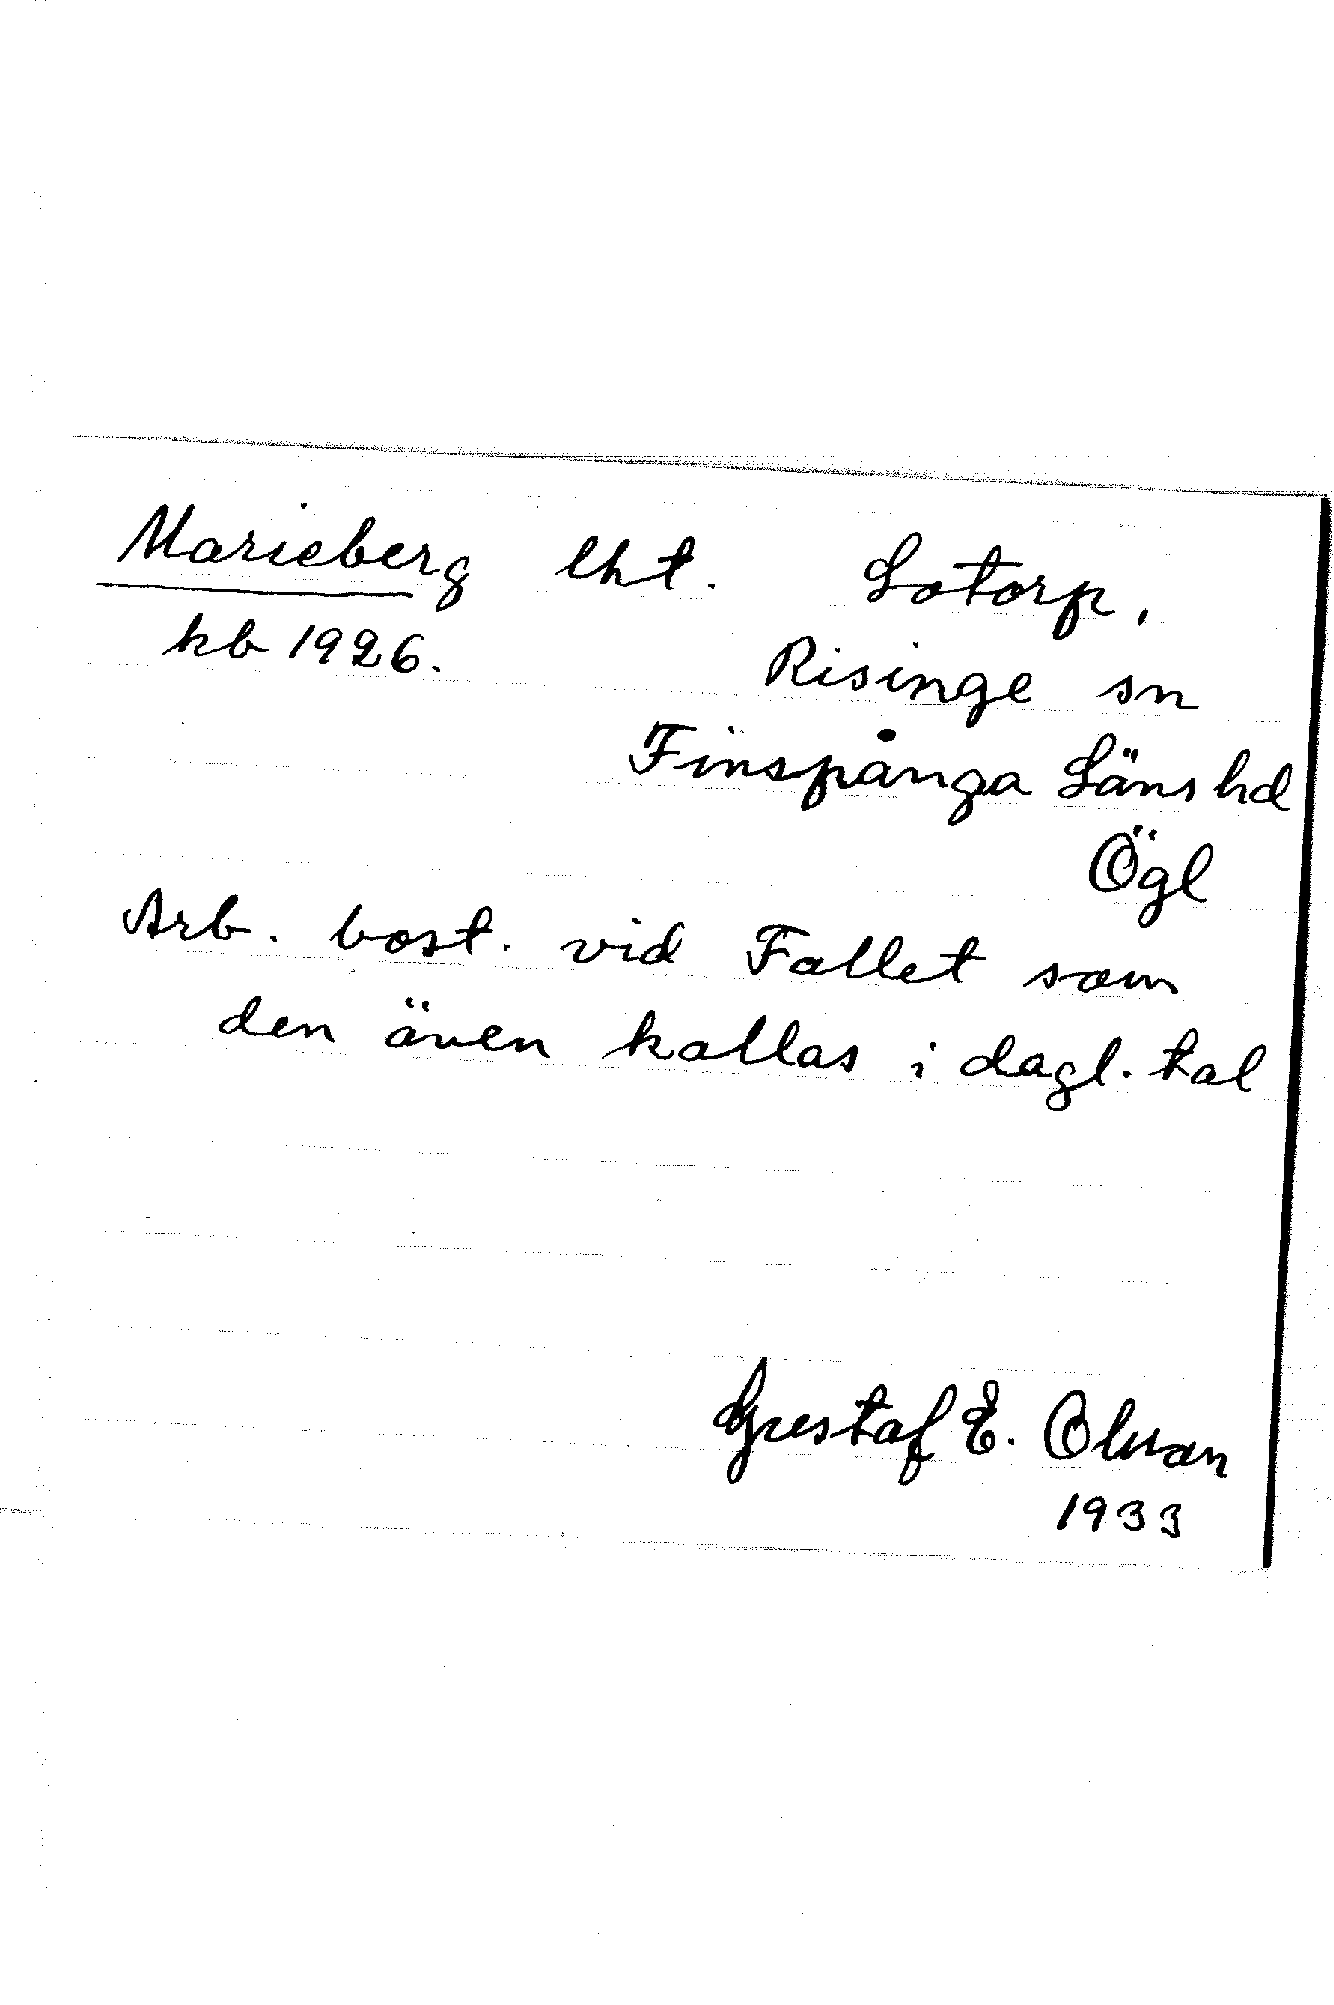 Marieberg lht. Lotorp,
kb 1926. Risinge sn
Finspånga Läns hd
Ögl
Arb. bost. vid Fallet som
den även kallas i dagl. tal
Gustaf E. Olsson
1933